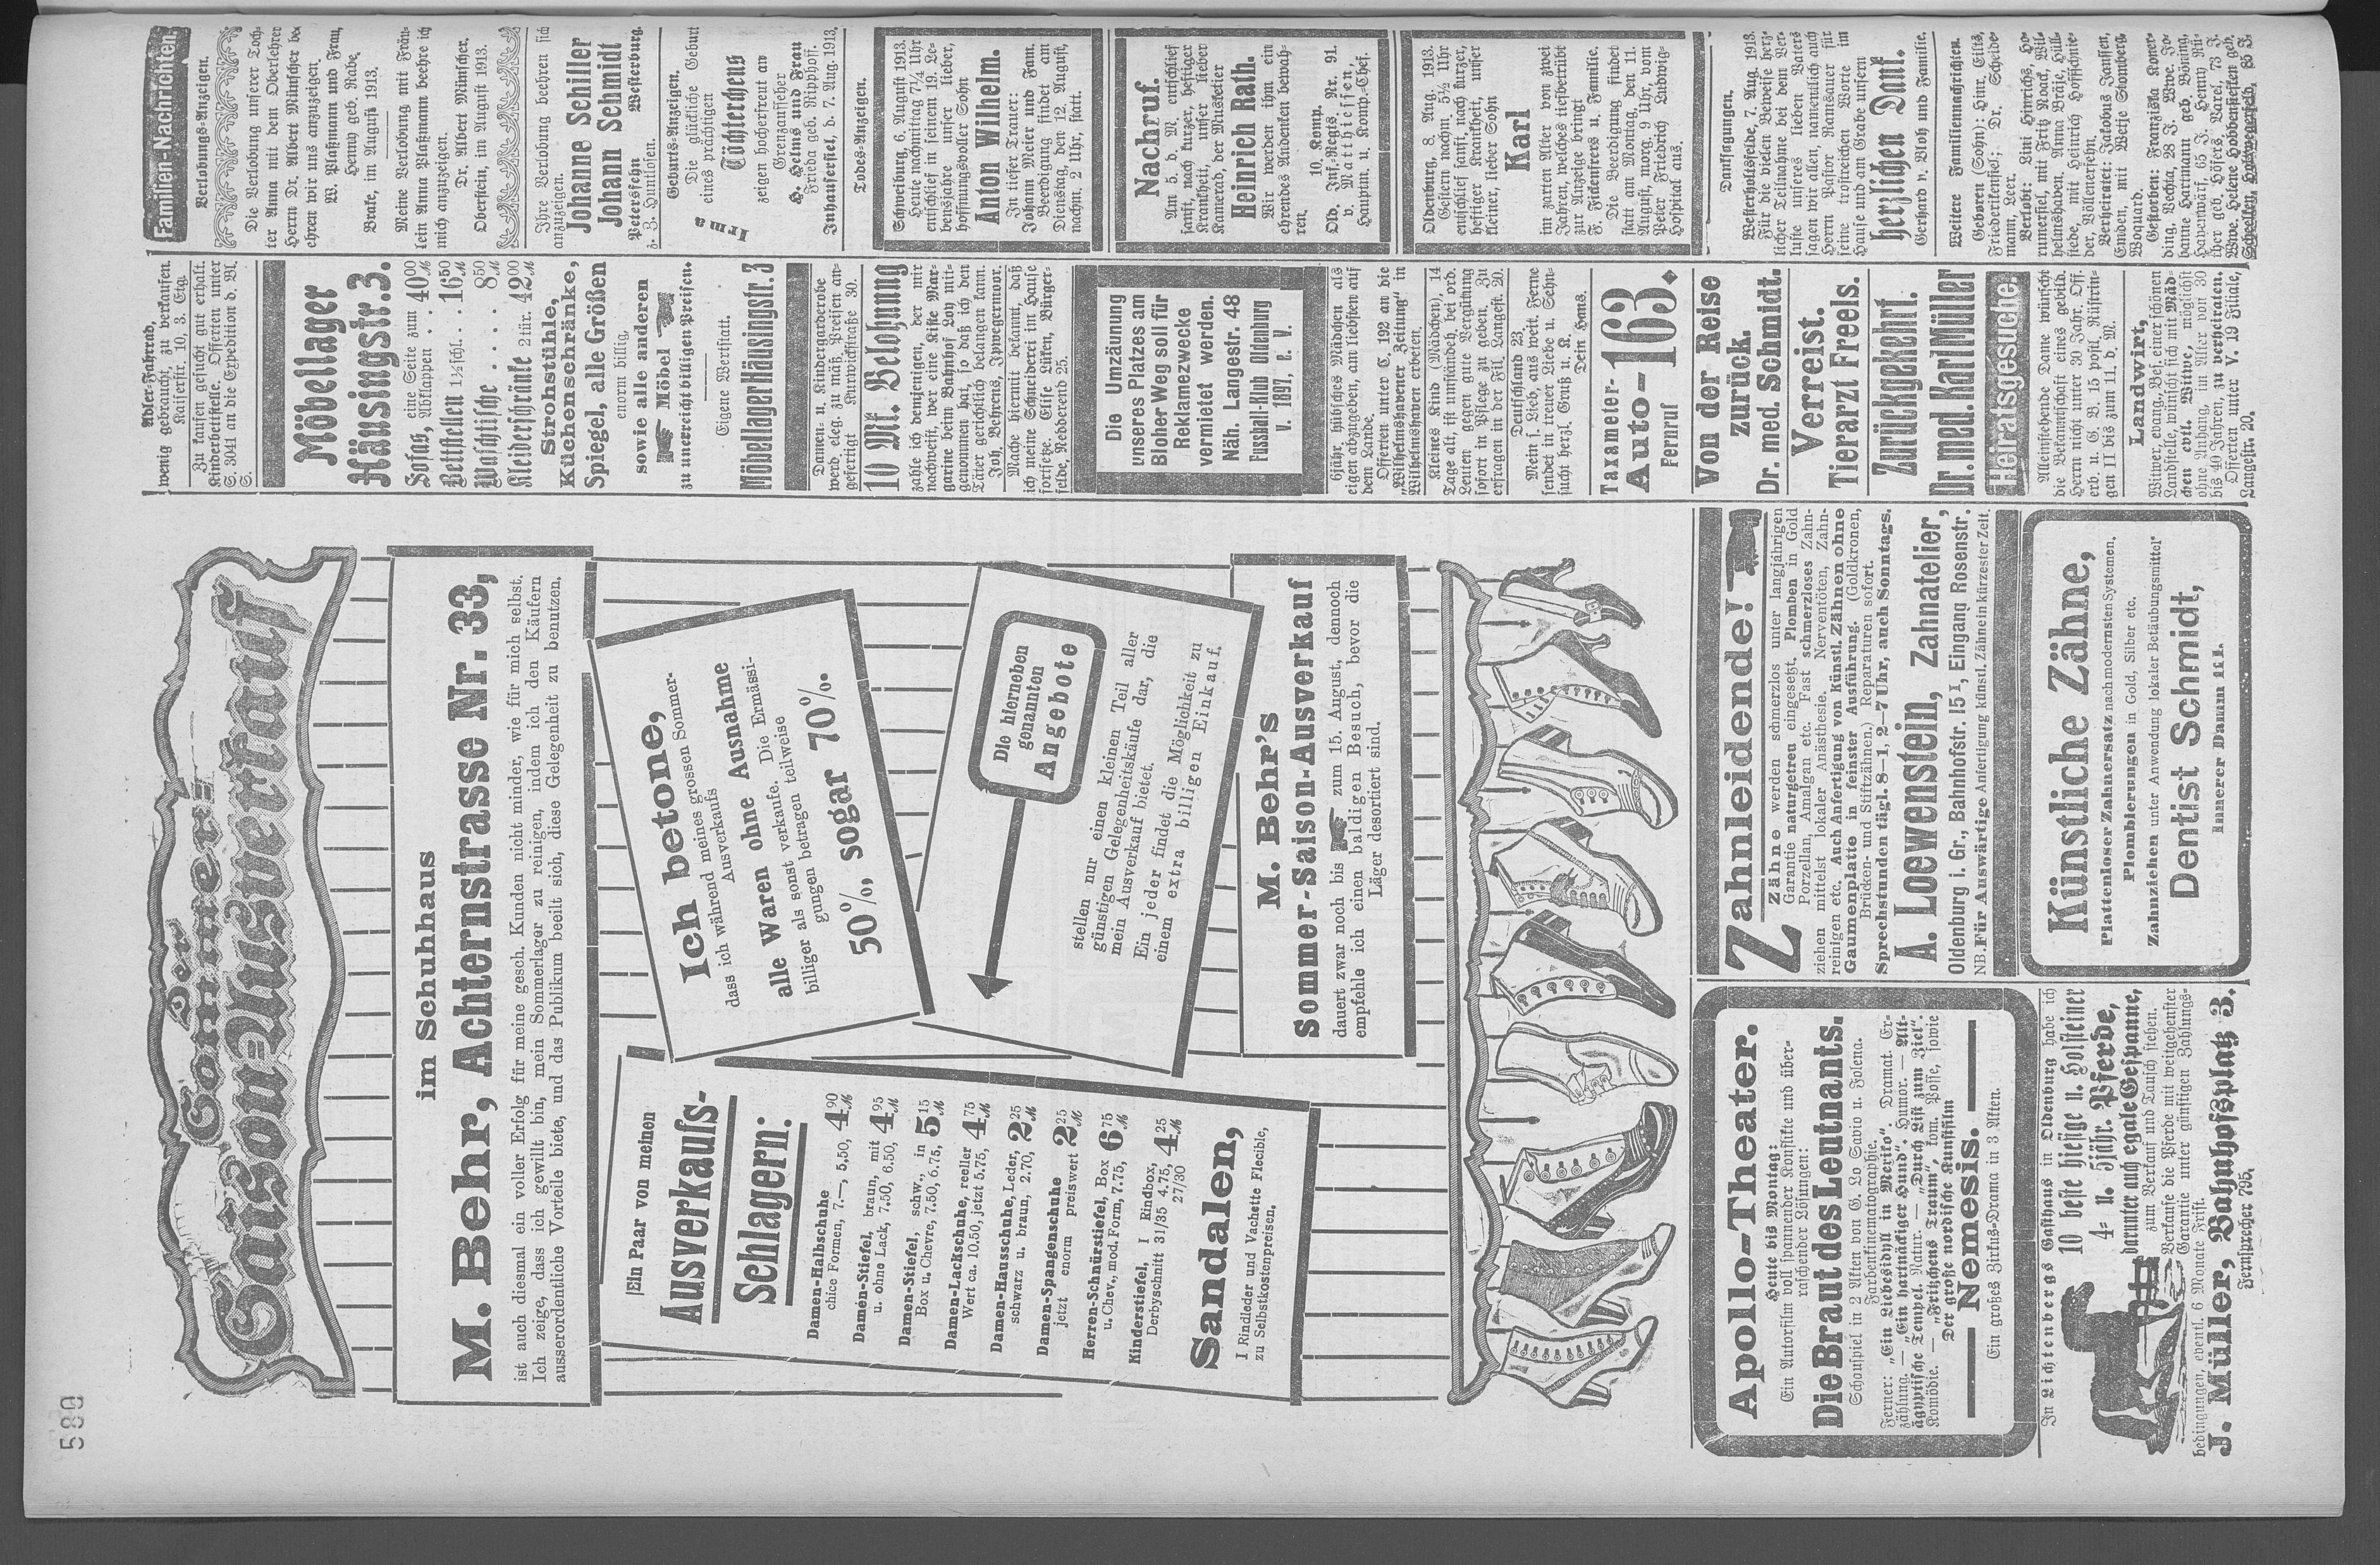 589
Der
Sommer-
Saison-Ausverkauf
im Schuhhaus
M. Behr, Achternstrasse Nr. 33,
ist auch diesmal ein voller Erfolg für meine gesch. Kunden nicht minder, wie für mich selbst.
Ich zeige, dass ich gewillt bin, mein Sommerlager zu reinigen, indem ich den Käufern
ausserordentliche Vorteile biete, und das Publikum beeilt sich, diese Gelegenheit zu benutzen.
Ein Paar von meinen
Ausverkaufs-
Schlagern:
Damen-Halbschuhe
chice Formen, 7.—, 5,50, 4 90 M
Damen-Stiefel, braun, mit
u. ohne Lack, 7.50, 6.50, 4 95 M
Damen-Stiefel, schw., in
Box u. Chevre, 7.50, 6.75, 5 15 M
Damen-Lackschuhe, reeller
Wert ca. 10.50, jetzt 5.75, 4 75 M
Damen-Hausschuhe, Leder,
schwarz u. braun, 2.70, 2 25 M
Damen-Spangenschuhe
jetzt enorm preiswert 2 25 M
Herren-Schnürstiefel, Box
u. Chev., mod. Form, 7.75, 6 75 M
Kinderstiefel, I Rindbox,
Derbyschnitt 31/35 4.75, 27/30 4 25 M
Sandalen,
I Rindleder und Vachette Flecible,
zu Selbstkostenpreisen.
Ich betone,
dass ich während meines grossen Sommer-
Ausverkaufs
alle Waren ohne Ausnahme
billiger als sonst verkaufe. Die Ermässi-
gungen betragen teilweise
50%, sogar 70%.
Die hierneben
genannten
Angebote
stellen nur einen kleinen Teil aller
günstigen Gelegenheitskäufe dar, die
mein Ausverkauf bietet.
Ein jeder findet die Möglichkeit zu
einem extra billigen Einkauf.
M. Behr's
Sommer-Saison-Ausverkauf
dauert zwar noch bis zum 15. August, dennoch
empfehle ich einen baldigen Besuch, bevor die
Läger desortiert sind.
Apollo-Theater.
Heute bis Montag:
Ein Autorfilm voll spannender Konflikte und über-
raschender Lösungen:
Die Braut des Leutnants.
Schauspiel in 2 Akten von G. Lo Savio u. Folena.
Farbenkinematographie.
Ferner: „Ein Liebesidyll in Mexiko“. Dramat. Er-
zählung. — „Ein hartnäckiger Hund“. Humor. — Alt-
ägyptische Tempel. Natur. — „Durch List zum Ziel“.
Komödie. — „Fritzchens Traum“, kom. Posse, sowie
Der große nordische Kunstfilm
Nemesis.
Ein großes Zirkus-Drama in 3 Akten.
In Lichtenbergs Gasthaus in Oldenburg habe ich
10 beste hiesige u. Holsteiner
4- u. 5jähr. Pferde,
darunter auch egale Gespanne,
zum Verkauf und Tausch stehen.
Verkaufe die Pferde mit weitgehenster
Garantie unter günstigen Zahlungs-
bedingungen, eventl. 6 Monate Frist.
J. Müller, Bahnhofsplatz 3.
Fernsprecher 795.
Zahnleidende!
Zähne werden schmerzlos unter langjährigen
Garantie naturgetreu eingesetzt, Plomben in Gold
Porzellan, Amalgan etc. Fast schmerzloses Zahn-
ziehen mittelst lokaler Anästhesie. Nerventöten, Zahn-
reinigen etc. Auch Anfertigung von Künstl. Zähnen ohne
Gaumenplatte in feinster Ausführung. (Goldkronen,
Brücken- und Stiftzähnen.) Reparaturen sofort.
Sprechstunden tägl. 8—1, 2—7 Uhr, auch Sonntags.
A. Loewenstein, Zahnatelier,
Oldenburg i. Gr., Bahnhofstr. 15 I, Eingang Rosenstr.
NB. Für Auswärtige Anfertigung künstl. Zähne in kürzester Zeit.
Künstliche Zähne,
Plattenloser Zahnersatz nach modernsten Systemen.
Plombierungen in Gold, Silber etc.
Zahnziehen unter Anwendung lokaler Betäubungsmittel
Dentist Schmidt,
Innerer Damm 111.
Adler-Fahrrad,
wenig gebraucht, zu verkaufen.
Kaiserstr. 10, 3. Etg.
Zu kaufen gesucht gut erhalt.
Kinderbettstelle. Offerten unter
S. 3041 an die Expedition d. Bl.
Möbellager
Häusingstr. 3.
Sofas, eine Seite zum Abklappen . . 40 00 M
Bettstellen 1½schl. . . 16 50 M
Waschtische . . . . 8 50 M
Kleiderschränke 2tür. 42 00 M
Strohstühle,
Küchenschränke,
Spiegel, alle Größen
enorm billig,
sowie alle anderen
Möbel
zu unerreicht billigen Preisen.
Eigene Werkstatt.
Möbellager Häusingstr. 3
Damen- u. Kindergarderobe
werd. eleg. zu mäß. Preisen an-
gefertigt Kurwickstraße 30.
10 Mk. Belohnung
zahle ich demjenigen, der mir
nachweist, wer eine Kiste Mar-
garine beim Bahnhof Loy mit-
genommen hat, so daß ich den
Täter gerichtlich belangen kann.
Joh. Behrens, Ipwegermoor.
Mache hiermit bekannt, daß
ich meine Schneiderei im Hause
fortsetze. Elise Lüken, Bürger-
felde, Nedderend 25.
Die Umzäunung
unseres Platzes am
Bloher Weg soll für
Reklamezwecke
vermietet werden.
Näh. Langestr. 48
Fussball-Klub Oldenburg
v. 1897, e. V.
6jähr. hübsches Mädchen als
eigen abzugeben, am liebsten auf
dem Lande.
Offerten unter C. 192 an die
„Wilhelmshavener Zeitung“ in
Wilhelmshaven erbeten.
Kleines Kind (Mädchen), 14
Tage alt, ist umständeh. bei ord.
Leuten gegen gute Vergütung
sofort in Pflege zu geben. Zu
erfragen in der Fil. Langestr. 20.
Deutschland 23.
Mein s. Lieb, aus weit. Ferne
sendet in treuer Liebe u. Sehn-
sucht herzl. Gruß u. K.
Dein Hans.
Taxameter-
Auto-163.
Fernruf
Von der Reise
zurück.
Dr. med. Schmidt.
Verreist.
Tierarzt Freels.
Zurückgekehrt.
Dr. med. Karl Müller
Heiratsgesuche.
Alleinstehende Dame wünscht
die Bekanntschaft eines gebild.
Herrn nicht unter 30 Jahr. Off.
erb. u. G. B. 15 postl. Rüstrin-
gen II bis zum 11. d. M.
Landwirt,
Witwer, evang., Bes. einer schönen
Landstelle, wünscht sich mit Mäd-
chen evtl. Witwe, möglichst
ohne Anhang, im Alter von 30
bis 40 Jahren, zu verheiraten.
Offerten unter V. 19 Filiale,
Langestr. 20.
Familien-Nachrichten.
Verlobungs-Anzeigen.
Die Verlobung unserer Toch-
ter Anna mit dem Oberlehrer
Herrn Dr. Albert Münscher be-
ehren wir uns anzuzeigen
W. Plaßmann und Frau,
Henny geb. Rabe.
Brake, im August 1913.
Meine Verlobung mit Fräu-
lein Anna Plaßmann beehre ich
mich anzuzeigen.
Dr. Albert Münscher.
Oberstein, im August 1913.
Ihre Verlobung beehren sich
anzuzeigen.
Johanne Schiller
Johann Schmidt
Petersfehn Westerburg.
z. Z. Huntlosen.
Geburts-Anzeigen.
Die glückliche Geburt
eines prächtigen
Töchterchens
Irma
zeigen hocherfreut an
Grenzaufseher
H. Helms und Frau
Frieda geb. Ripphoff.
Inhausersiel, d. 7. Aug. 1913.
Todes-Anzeigen.
Schweiburg, 6. August 1913.
Heute nachmittag 7¼ Uhr
entschlief in seinem 19. Le-
bensjahre unser lieber,
hoffnungsvoller Sohn
Anton Wilhelm.
In tiefer Trauer:
Johann Meier und Fam.
Beerdigung findet am
Dienstag, den 12. August,
nachm. 2 Uhr, statt.
Nachruf.
Am 5. d. M. entschlief
sanft, nach kurzer heftiger
Krankheit, unser lieber
Kamerad, der Musketier
Heinrich Rath.
Wir werden ihm ein
ehrendes Andenken bewah-
ren.
10. Komp.
Old. Inf.-Regts. Nr. 91.
v. Matthiessen,
Hauptm. u. Komp.-Chef.
Oldenburg, 8. Aug. 1913.
Gestern nachm. 5½ Uhr
entschlief sanft, nach kurzer,
heftiger Krankheit, unser
kleiner, lieber Sohn
Karl
im zarten Alter von zwei
Jahren, welches tiefbetrübt
zur Anzeige bringt
F. Fickenfrers u. Familie.
Die Beerdigung findet
statt am Montag, den 11.
August, morg. 9 Uhr, vom
Peter Friedrich Ludwig-
Hospital aus.
Danksagungen.
Westerholtsfelde, 7. Aug. 1913.
Für die vielen Beweise herz-
licher Teilnahme bei dem Ver-
luste unseres lieben Vaters
sagen wir allen, namentlich auch
Herrn Pastor Ramsauer für
seine trostreichen Worte im
Hause und am Grabe unsern
herzlichen Dank.
Gerhard v. Bloh und Familie.
Weitere Familiennachrichten.
Geboren (Sohn): Hinr. Eilts,
Friederikensiel; Dr. Scheide-
mann, Leer.
Verlobt: Lini Hinrichs, Ho-
rumersiel, mit Fritz Noack, Wil-
helmshaven. Anna Bräse, Hüll-
stede, mit Heinrich Hoffschnie-
der, Vollenerfehn.
Verheiratet: Jakobus Janssen,
Emden, mit Wetje Stomberg,
Woquard.
Gestorben: Franziska Koner-
ding, Vechta, 28 J. Wwe. Jo-
hanne Hartmann geb. Bönning,
Havenwarf, 65 J. Henny Rü-
ther geb. Höfers, Varel, 73 J.
Wwe. Helene Hobbensiefken geb.